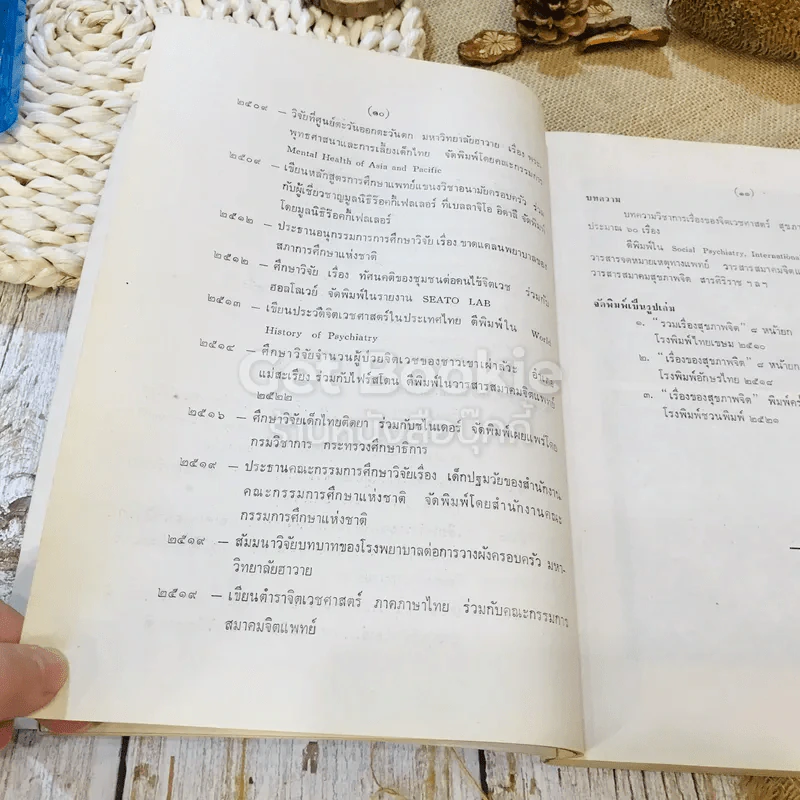 (๑๐)
๒๕๐๙ – วิจัยที่ศูนย์ตะวันออกตะวันตก มหาวิทยาลัยฮาวาย เรื่อง
พุทธศาสนาและการเลี้ยงเด็กไทย จัดพิมพ์โดยคณะกรรมการ
Mental Health of Asia and Pacific
๒๕๐๙ – เขียนหลักสูตรการศึกษาแพทย์แขนงวิชาอนามัยครอบครัว ร่วม
กับผู้เชี่ยวชาญมูลนิธิร๊อคกี้เฟลเลอร์ ที่เบลลาจิโอ อิตาลี จัดพิมพ์
โดยมูลนิธิร๊อคกี้เฟลเลอร์
๒๕๑๒ – ประธานอนุกรรมการการศึกษาวิจัย เรื่อง ขาดแคลนพยาบาลของ
สภาการศึกษาแห่งชาติ
๒๕๑๒ – ศึกษาวิจัย เรื่อง ทัศนคติของชุมชนต่อคนไข้จิตเวช ร่วมกับ
ฮอลโลเวย์ จัดพิมพ์ในรายงาน SEATO LAB
๒๕๑๓ – เขียนประวัติจิตเวชศาสตร์ในประเทศไทย ตีพิมพ์ใน World
History of Psychiatry
๒๕๑๔ – ศึกษาวิจัยจำนวนผู้ป่วยจิตเวชของชาวเขาเผ่าละว้า อำเภอ
แม่สะเรียง ร่วมกับไฟร์สโตน ตีพิมพ์ในวาสารสมาคมจิตแพทย์
๒๕๒๒
๒๕๑๖ – ศึกษาวิจัยเด็กไทยติดยา ร่วมกับชไนเดอร์ จัดพิมพ์เผยแพร่โดย
กรมวิชาการ กระทรวงศึกษาธิการ
๒๕๑๙ – ประธานคณะกรรมการศึกษาวิจัยเรื่อง เด็กปฐมวัยของสำนักงาน
คณะกรรมการศึกษาแห่งชาติ จัดพิมพ์โดยสำนักงานคณะ
กรรมการศึกษาแห่งชาติ
๒๕๑๙ – สัมมนาวิจัยบทบาทของโรงพยาบาลต่อการวางผังครอบครัว มหา-
วิทยาลัยฮาวาย
๒๕๑๙ – เขียนตำราจิตเวชศาสตร์ ภาคภาษาไทย ร่วมกับคณะกรรมการ
สมาคมจิตแพทย์
Get Bookie
ร้านหนังสือบุ๊กกี้
(๑๑)
บทความ
บทความวิชาการเรื่องของจิตเวชศาสตร์
ประมาณ ๖๐ เรื่อง
ตีพิมพ์ใน Social Psychiatry, International
วารสารจดหมายเหตุทางแพทย์ วารสารสมาคมจิตแพทย์
วารสารสมาคมสุขภาพจิต สารศิริราช ฯลฯ
จัดพิมพ์เป็นรูปเล่ม
๑. "รวมเรื่องสุขภาพจิต" ๘ หน้ายก
โรงพิมพ์ไทยเขษม ๒๕๑๐
๒. "เรื่องของสุขภาพจิต" ๘ หน้ายก
โรงพิมพ์อักษรไทย ๒๕๑๘
๓. "เรื่องของสุขภาพจิต" พิมพ์ครั้ง
โรงพิมพ์ชวนพิมพ์ ๒๕๒๑